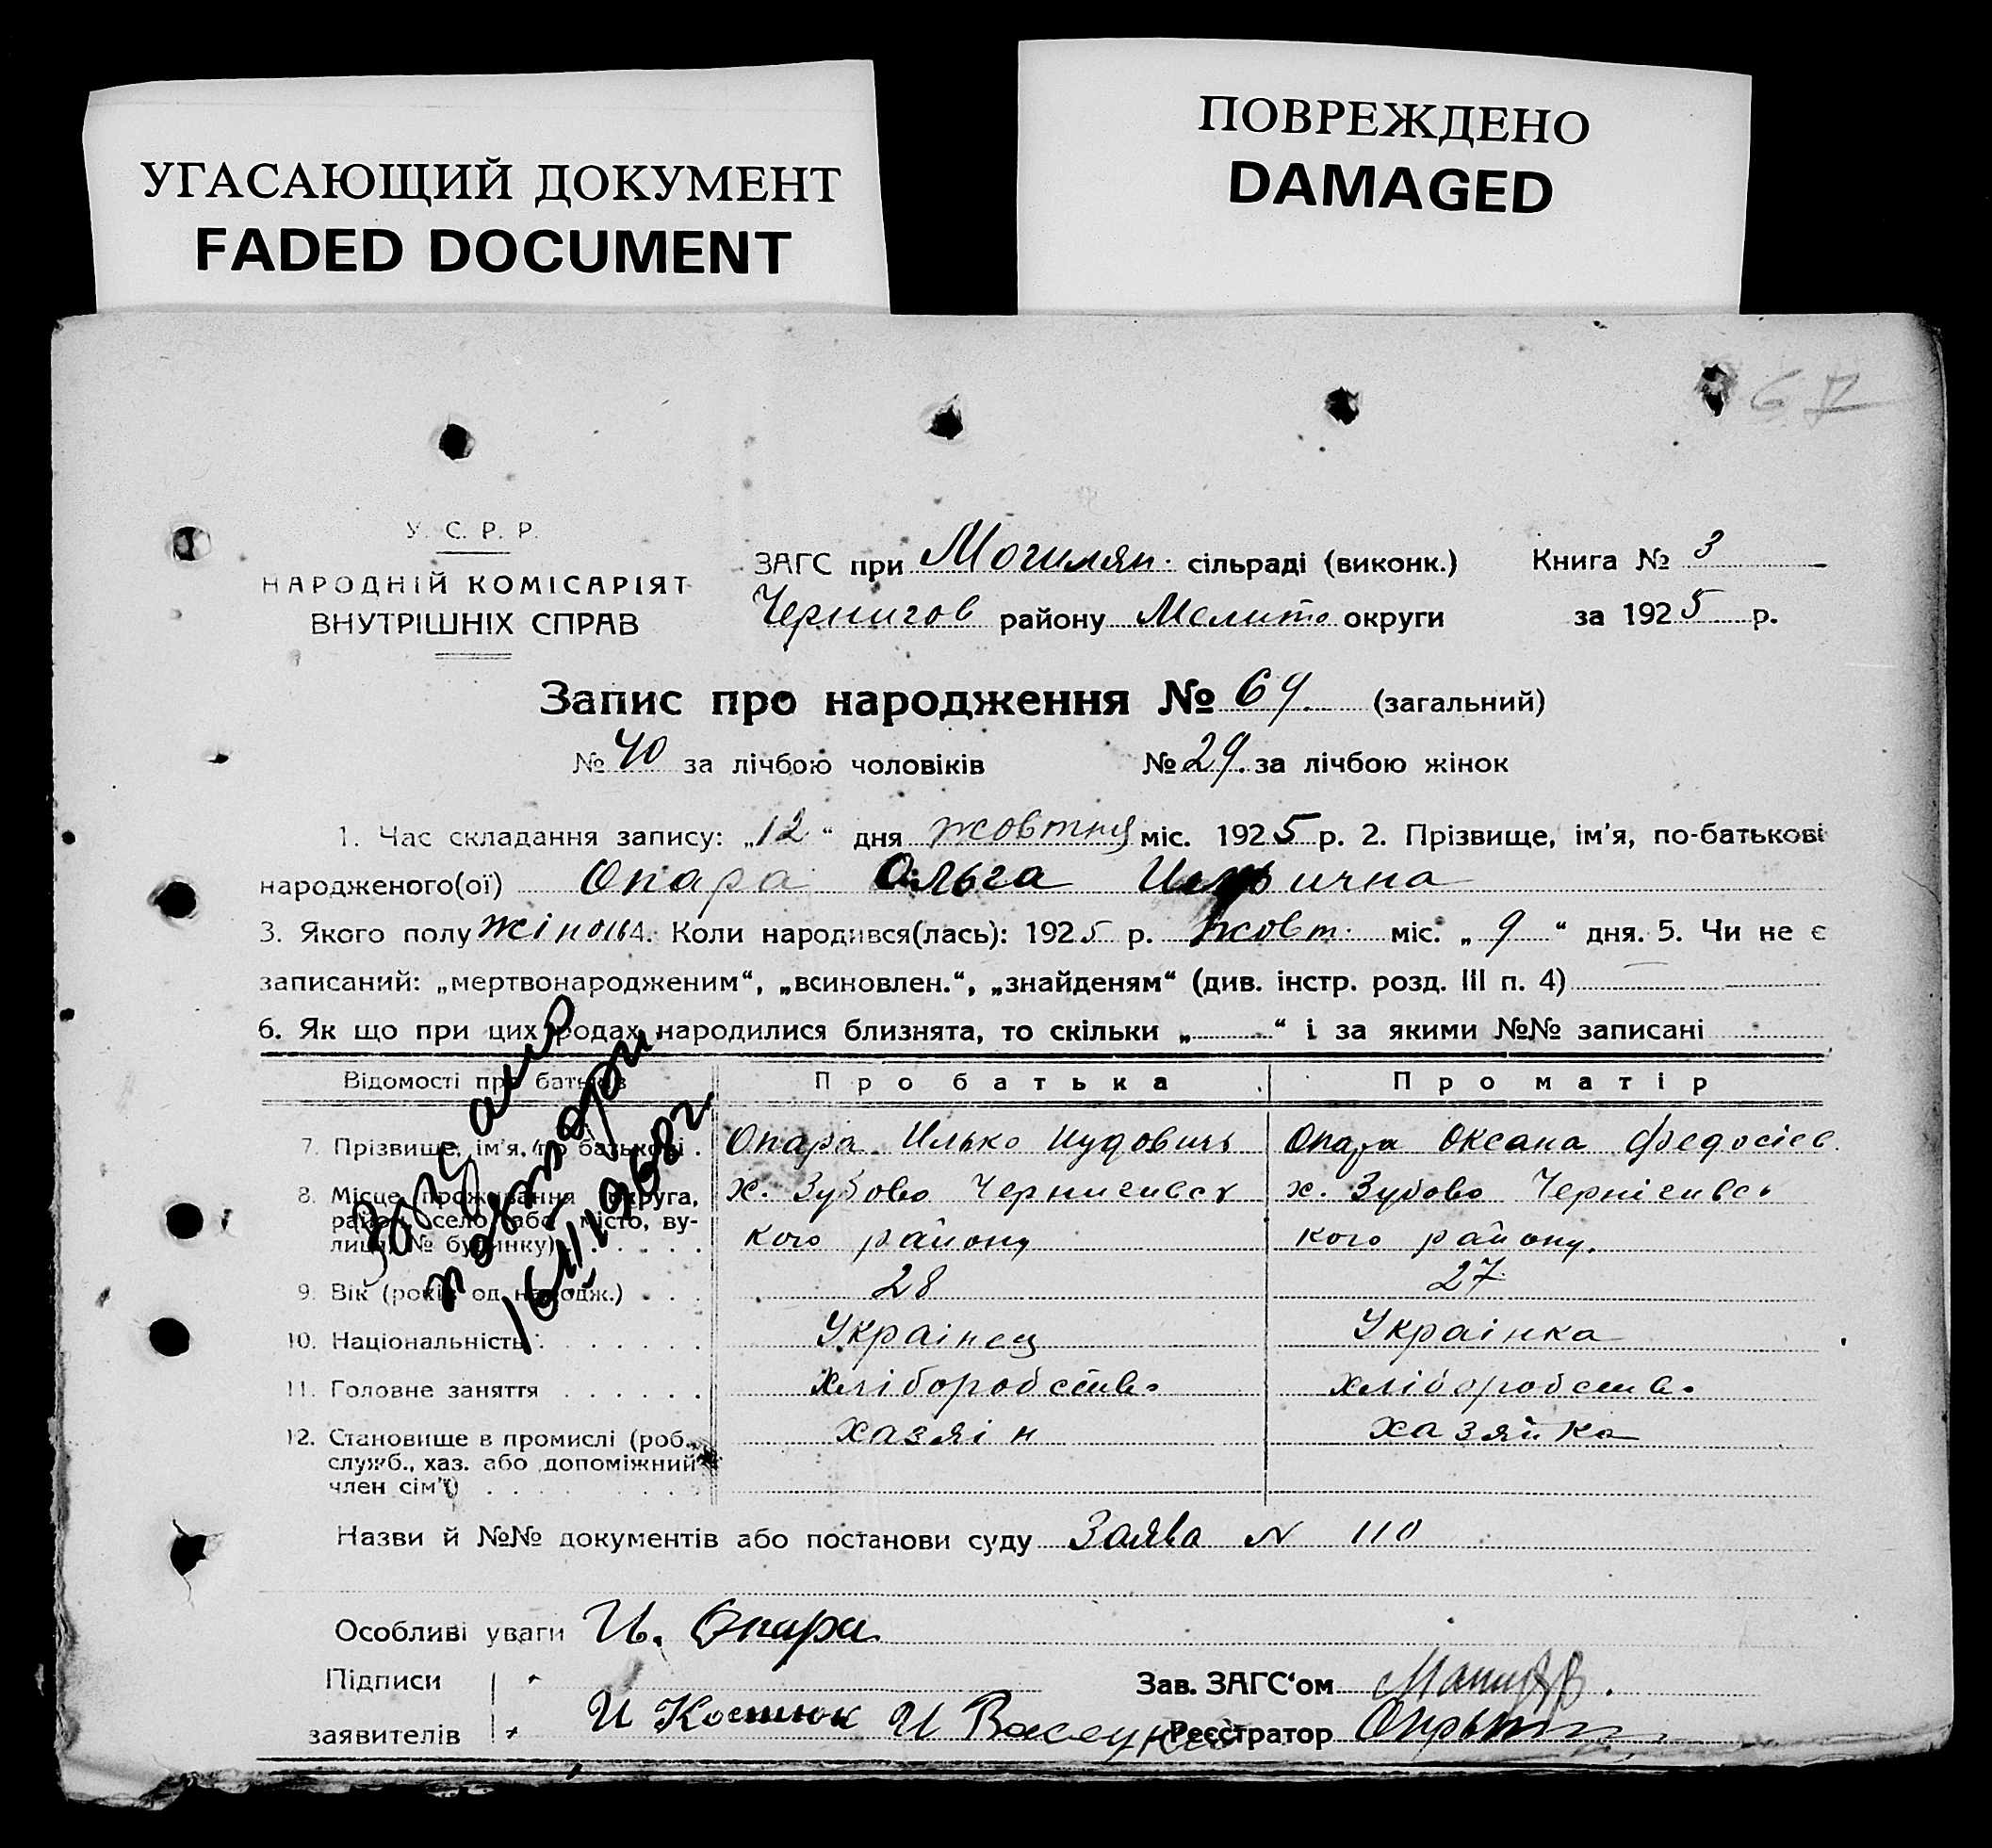 УГАСАЮЩИЙ ДОКУМЕНТ
FADED DOCUMENT
ПОВРЕЖДЕНО
DAMAGED
67
У. С. Р. Р.
НАРОДНІЙ КОМІСАРІЯТ
ВНУТРІШНІХ СПРАВ
ЗАГС при Могилян. сільраді (виконк.) Книга № 3
Чернигов району Мелито округи за 1925 р.
Запис про народження № 69. (загальний)
№ 40 за лічбою чоловіків № 29. за лічбою жінок
1. Час складання запису: „12“ дня жовтня міс. 1925 р. 2. Прізвище, ім'я, по-батькові
народженого(ої) Опара Ольга Ильична
3. Якого полу жіноч 4. Коли народився(лась): 1925 р. жовт. міс. „9“ дня. 5. Чи не є
записаний: „мертвонародженим“, „всиновлен.“, „знайденям“ (див. інстр. розд. III п. 4)
6. Як що при цих родах народилися близнята, то скільки „ “ і за якими №№ записані
Відомості про батьків Про батька Про матір
7. Прізвище, ім'я, по батькові . Опара Илько Иудовичь Опара Оксана Федосієв.
8. Місце проживання (округа, район, село або місто, ву-лиця, № будинку) х. Зубово Чернигивсь х. Зубово Чернігивсь
кого району кого району.
9. Вік (років од народж.) 28 27
10. Національність Українец Українка
11. Головне заняття хліборобство хліборобство
12. Становище в промислі (роб., хазяін хазяйка
служб., хаз. або допоміжний
член сім'ї)
16/II 1968 г
Назви й №№ документів або постанови суду Заява N 110
Особливі уваги И. Опара
Підписи Зав. ЗАГС'ом
заявителів И Костюк И Реєстратор